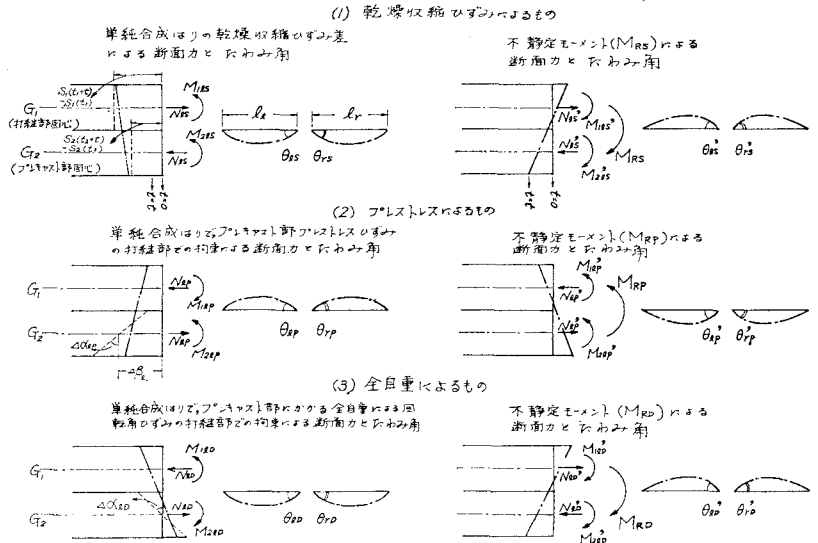 (1) 乾燥収縮ひずみによるもの
単純合成はりの乾燥収縮ひずみ差
による断面力とたわみ角
S₁(t₁+t)
-S₁(t₁)
G₁
(打継部図心)
S₂(t₂+t)
-S₂(t₁)
G₂
(プレキャスト部図心)
M₁ℓS
NℓS
M₂ℓS
NℓS
ℓℓ
ℓr
θℓS
θrS
t=t
t=0
不静定モーメント(MRS)による
断面力とたわみ角
NℓS'
M₁ℓS'
NℓS'
M₂ℓS'
MRS
θℓS'
θrS'
t=t
t=0
(2) プレストレスによるもの
単純合成はりで,プレキャスト部プレストレスひずみ
の打継部での拘束による断面力とたわみ角
G₁
G₂
NℓP
M₁ℓP
NℓP
M₂ℓP
ΔαℓP
θℓP
θrP
不静定モーメント(MRP)による
断面力とたわみ角
M₁ℓP'
NℓP'
MRP
NℓP'
M₂ℓP'
θℓP'
θrP'
(3) 全自重によるもの
単純合成はりで,プレキャスト部にかかる全自重による回
転角ひずみの打継部での拘束による断面力とたわみ角
G₁
G₂
M₁ℓD
NℓD
ΔαℓD
NℓD
M₂ℓD
θℓD
θrD
不静定モーメント(MRD)による
断面力とたわみ角
M₁ℓD'
NℓD'
NℓD'
MRD
M₂ℓD'
θℓD'
θrD'